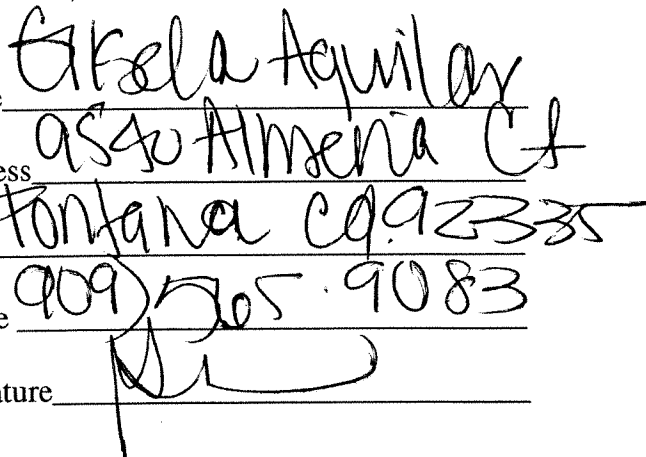 e Gisela Aguilar
ess 9540 Almeria Ct
Fontana Ca. 92335
e 909) 565.9083
ature